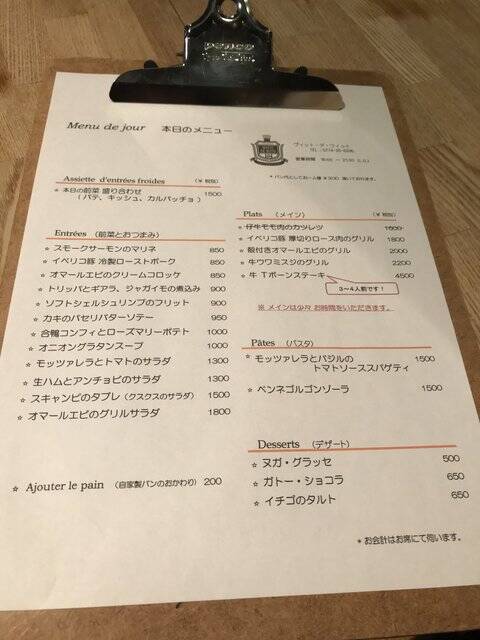 penco
Menu de jour 本日のメニュー
営業時間 18:00 ー 21:30 (L.O.)
Assiette d'entrées froides (¥ 税抜)
☆ 本日の前菜 盛り合わせ 1500
(パテ、キッシュ、カルパッチョ)
Entrées (前菜とおつまみ)
☆ スモークサーモンのマリネ 850
☆ イベリコ豚 冷製ローストポーク 850
☆ オマールエビのクリームコロッケ 850
☆ トリッパとギアラ、ジャガイモの煮込み 900
☆ ソフトシェルシュリンプのフリット 900
☆ カキのパセリバターソテー 950
☆ 合鴨コンフィとローズマリーポテト 1000
☆ オニオングラタンスープ 1000
☆ モッツァレラとトマトのサラダ 1300
☆ 生ハムとアンチョビのサラダ 1300
☆ スキャンピのタブレ (クスクスのサラダ) 1500
☆ オマールエビのグリルサラダ 1800
☆ Ajouter le pain (自家製パンのおかわり) 200
Plats (メイン) (¥ 税抜)
☆ 仔牛モモ肉のカツレツ 1600
☆ イベリコ豚 厚切りロース肉のグリル 1800
☆ 殻付きオマールエビのグリル 2000
☆ 牛ウワミスジのグリル 2200
☆ 牛 Tボーンステーキ 4500
3〜4人前です!
※ メインは少々 お時間をいただきます。
Pâtes (パスタ)
☆ モッツァレラとバジルの 1500
トマトソーススパゲティ
☆ ペンネゴルゴンゾーラ 1500
Desserts (デザート)
☆ ヌガ・グラッセ 500
☆ ガトー・ショコラ 650
☆ イチゴのタルト 650
* お会計はお席にて伺います。